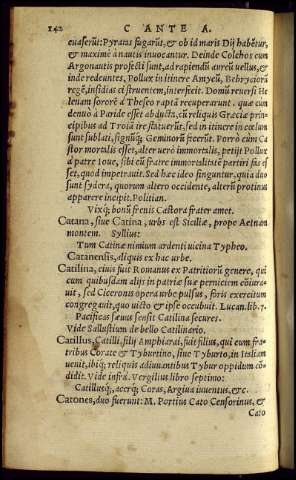 142 C ANTE A.
euaserūt: Pyratas fugarūt, & ob id maris Dij habētur,
& maximè à nautis inuocantur. Deinde Colchos cum
Argonautis profecti sunt, ad rapiendū aureū uellus, &
inde redeuntes, Pollux in itinere Amycū, Bebryciorū
regē, insidias ei struentem, interficit. Domū reuersi He
lenam sororē à Theseo raptā recuperarunt. quæ cum
dentuo à Paride esset abducta, cū reliquis Græciæ prin-
cipibus ad Troiā ire statuerūt, sed in itinere in cœlum
sunt sublati, signūq; Geminorū fecerūt. Porrò cum Ca
stor mortalis esset, alter uerò immortalis, petijt Pollux
à patre Ioue, sibi cū fratre immortalitatē partiri fas es
set, quod impetrauit. Sed hæc ideo finguntur, quia duo
sunt sydera, quorum altero occidente, alterū protinus
apparere incipit. Politian.
Vixq; bonū frenis Castora frater amet.
Catana, siue Catina, urbs est Siciliæ, prope Aetnam
montem. Syllius:
Tum Catinæ nimium ardenti uicina Typheo.
Catanensis, aliquis ex hac urbe.
Catilina, ciuis fuit Romanus ex Patritiorū genere, qui
cum quibusdam alijs in patriæ suæ perniciem coniura-
uit, sed Ciceronis opera urbe pulsus, foris exercitum
congregauit, quo uicto & ipse occubuit. Lucan. lib. 7.
Pacificas sæuus sensit Catilina secures.
Vide Sallustium de bello Catilinario.
Catillus, Catilli, filij Amphiarai, fuit filius, qui cum fra-
tribus Corace & Tyburtino, siue Tyburto, in Italiam
uenit, ibiq; reliquis adiuuantibus Tybur oppidum cō
didit. Vide infrà. Vergilius libro septimo:
Catillusq́;, acerq́; Coras, Argiua iuuentus, &c.
Catones, duo fuerunt: M. Portius Cato Censorinus, &
Cato